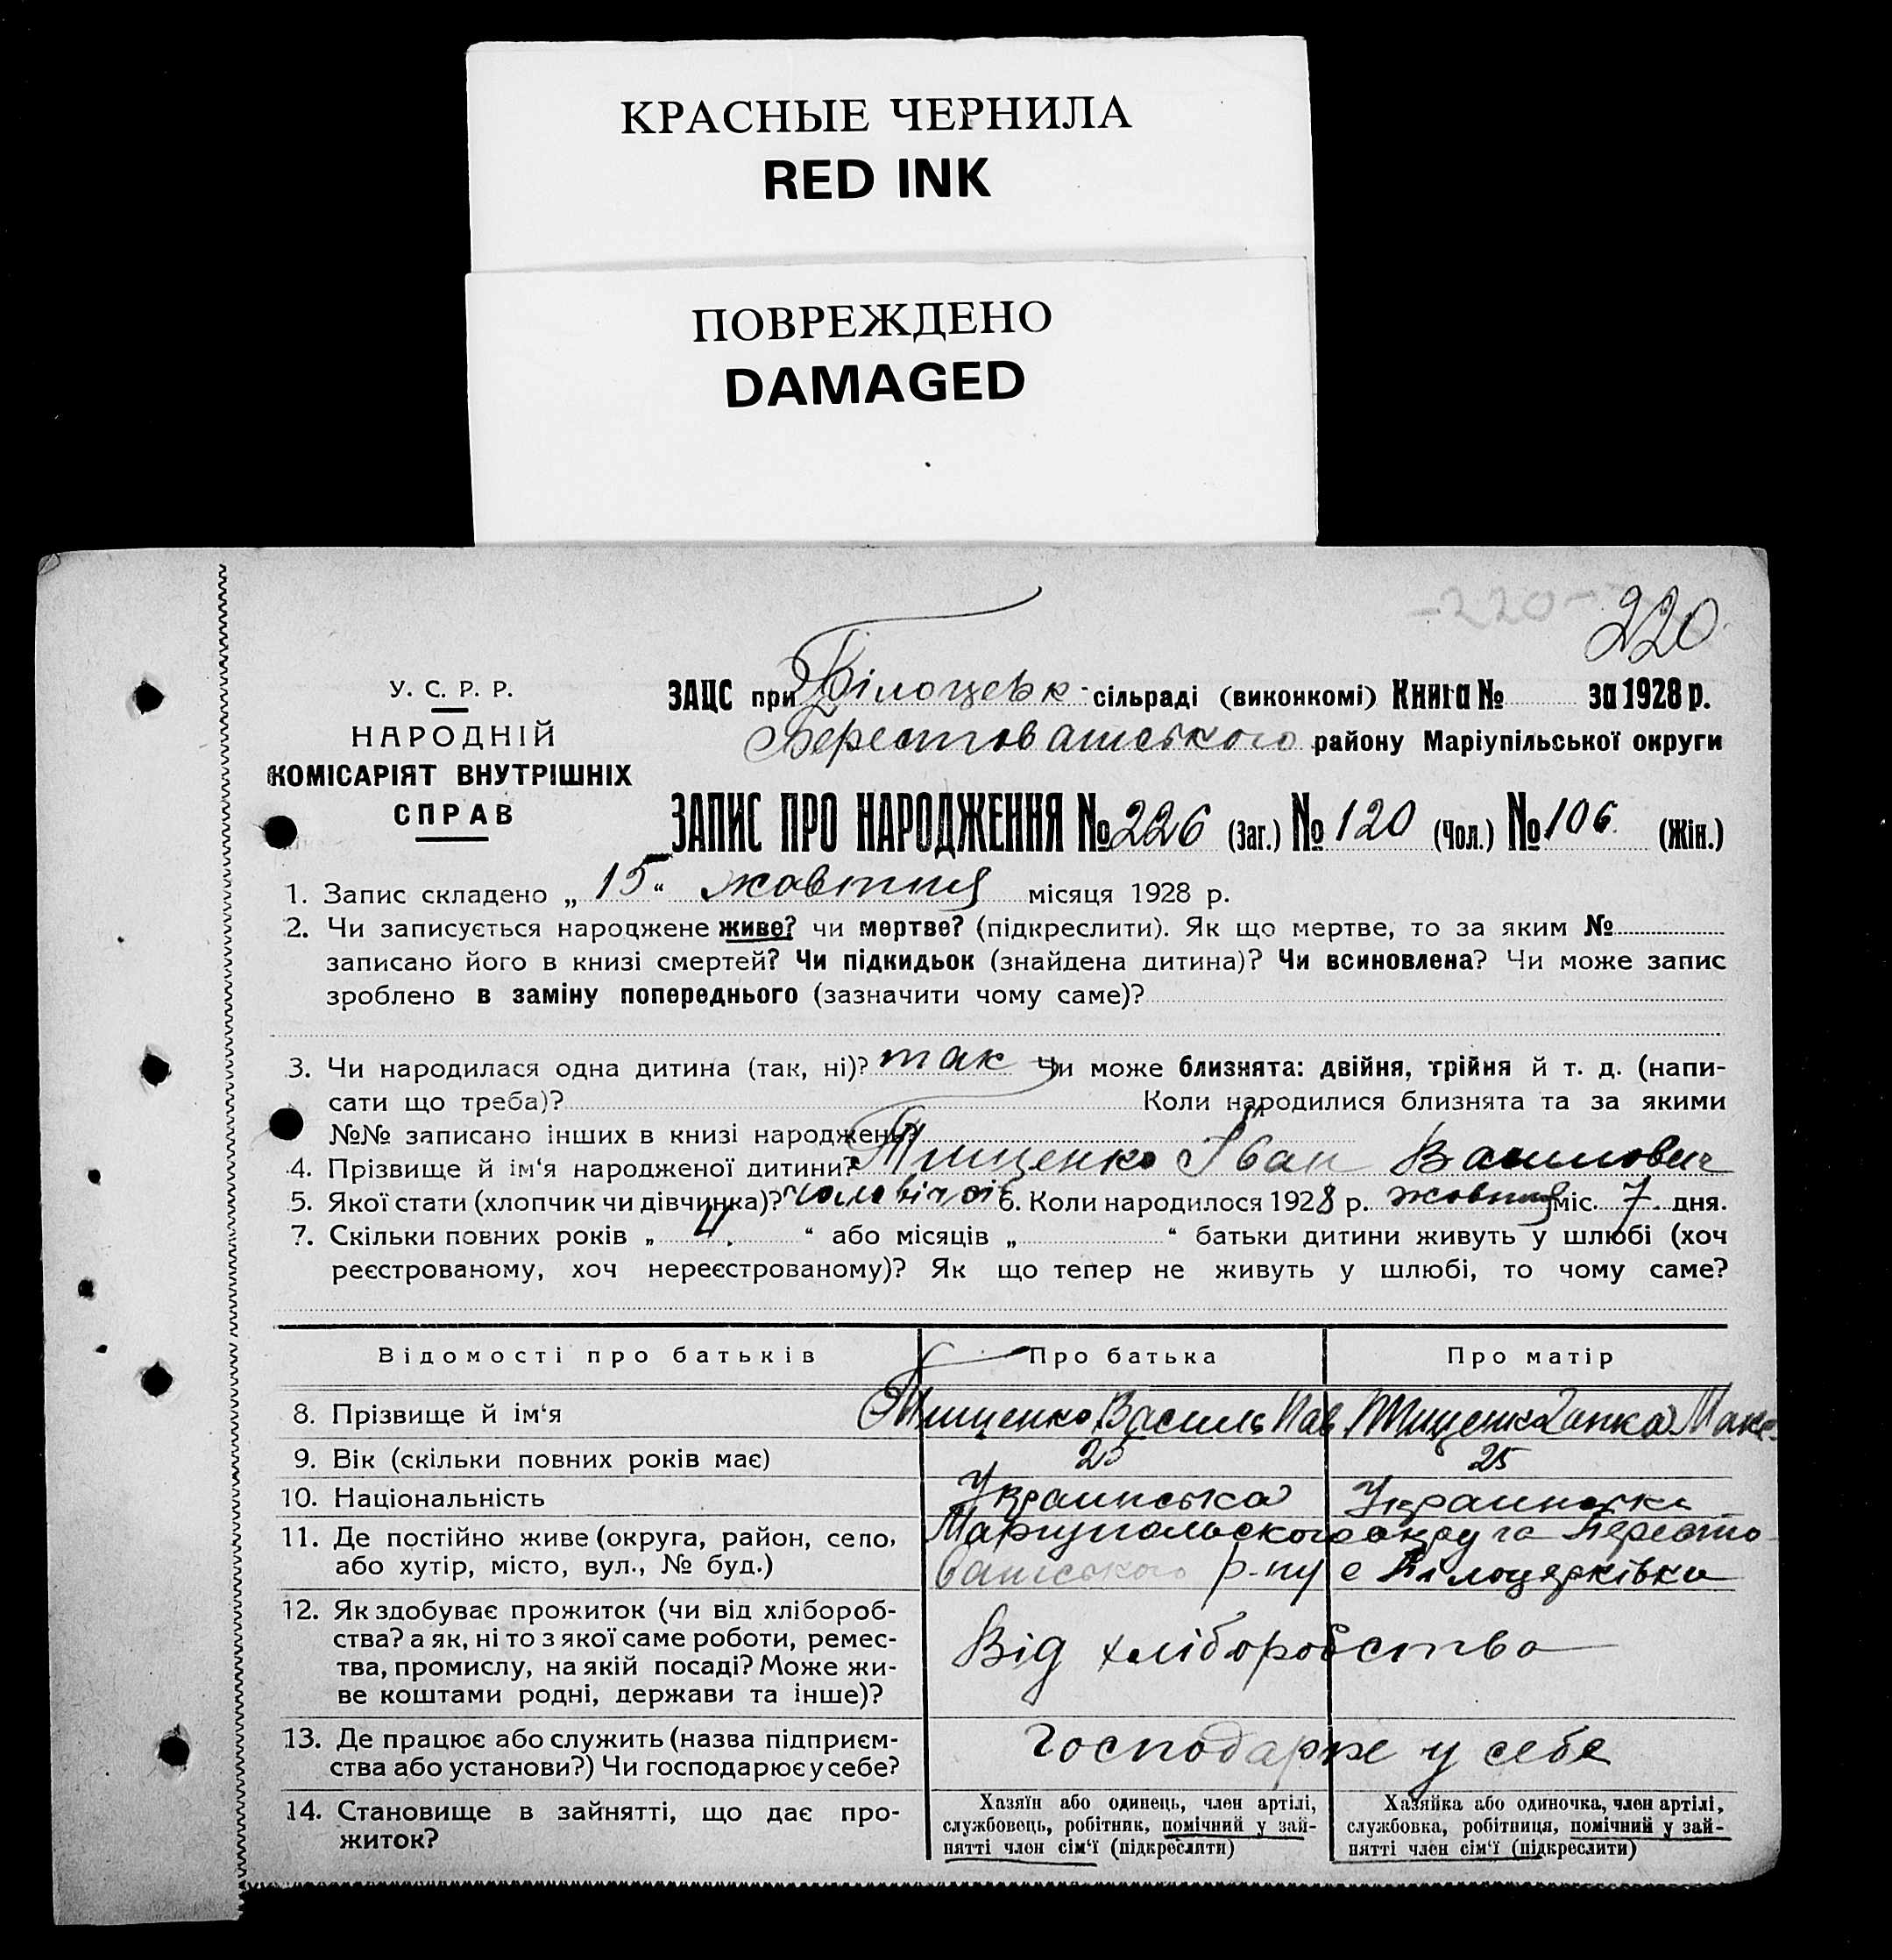 КРАСНЫЕ ЧЕРНИЛА
RED INK
ПОВРЕЖДЕНО
DAMAGED
-220-
220
У. С. Р. Р.
НАРОДНІЙ
КОМІСАРІЯТ ВНУТРІШНІХ
СПРАВ
ЗАЦС при Білоцерьк - сільраді (виконкомі) Книга № за 1928 р.
Берестоватського району Маріупільської округи
ЗАПИС ПРО НАРОДЖЕННЯ № 226 (Заг.) № 120 (Чол.) № 106. (Жін.)
1. Запис складено „ 15 “ жовтня місяця 1928 р.
2. Чи записується народжене живе? чи мертве? (підкреслити). Як що мертве, то за яким №
записано його в книзі смертей? Чи підкидьок (знайдена дитина)? Чи всиновлена? Чи може запис
зроблено в заміну попереднього (зазначити чому саме)?
3. Чи народилася одна дитина (так, ні)? так Чи може близнята: двійня, трійня й т. д. (напи-
сати що треба)? Коли народилися близнята та за якими
№№ записано інших в книзі народжень?
4. Прізвище й ім‘я народженої дитини? Тищенко Іван Василович
5. Якої стати (хлопчик чи дівчинка)? чоловічої 6. Коли народилося 1928 р. жовтня міс. 7 дня.
7. Скільки повних років „ 4. “ або місяців „ “ батьки дитини живуть у шлюбі (хоч
реєстрованому, хоч нереєстрованому)? Як що тепер не живуть у шлюбі, то чому саме?
Відомості про батьків Про батька Про матір
8. Прізвище й ім‘я Тищенко Василь Пав Тищенко Ганка Макс
9. Вік (скільки повних років має) 25 25
10. Національність Украинська Украинська
11. Де постійно живе (округа, район, село, Маріупольского округа Бересто-
або хутір, місто, вул., № буд.) ватського р-ну с Білоцерківка
12. Як здобуває прожиток (чи від хлібороб-
ства? а як, ні то з якої саме роботи, ремес-
тва, промислу, на якій посаді? Може жи-
ве коштами родні, держави та інше)?
Від хліборобства
13. Де працює або служить (назва підприєм-
ства або установи?) Чи господарює у себе?
Господарює у себе
14. Становище в зайнятті, що дає про-
житок?
Хазяїн або одинець, член артілі,
службовець, робітник, помічний у зай-
нятті член сім‘ї (підкреслити)
Хазяйка або одиночка, член артілі,
службовка, робітниця, помічний у зай-
нятті член сім‘ї (підкреслити)